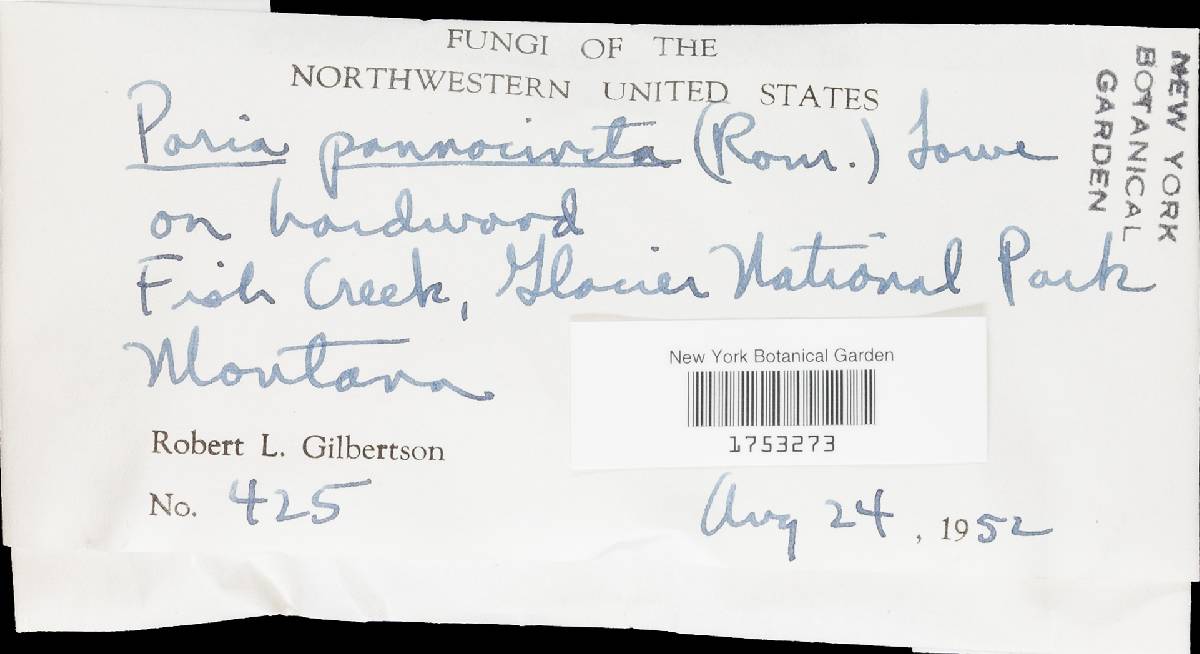 FUNGI OF THE
NORTHWESTERN UNITED STATES
Poria pannocincta (Rom.) Lowe
on hardwood
Fish Creek, Glacier National Park
Montana
Robert L. Gilbertson
No. 425
Aug 24, 1952
New York Botanical Garden
1753273
NEW YORK
BOTANICAL
GARDEN